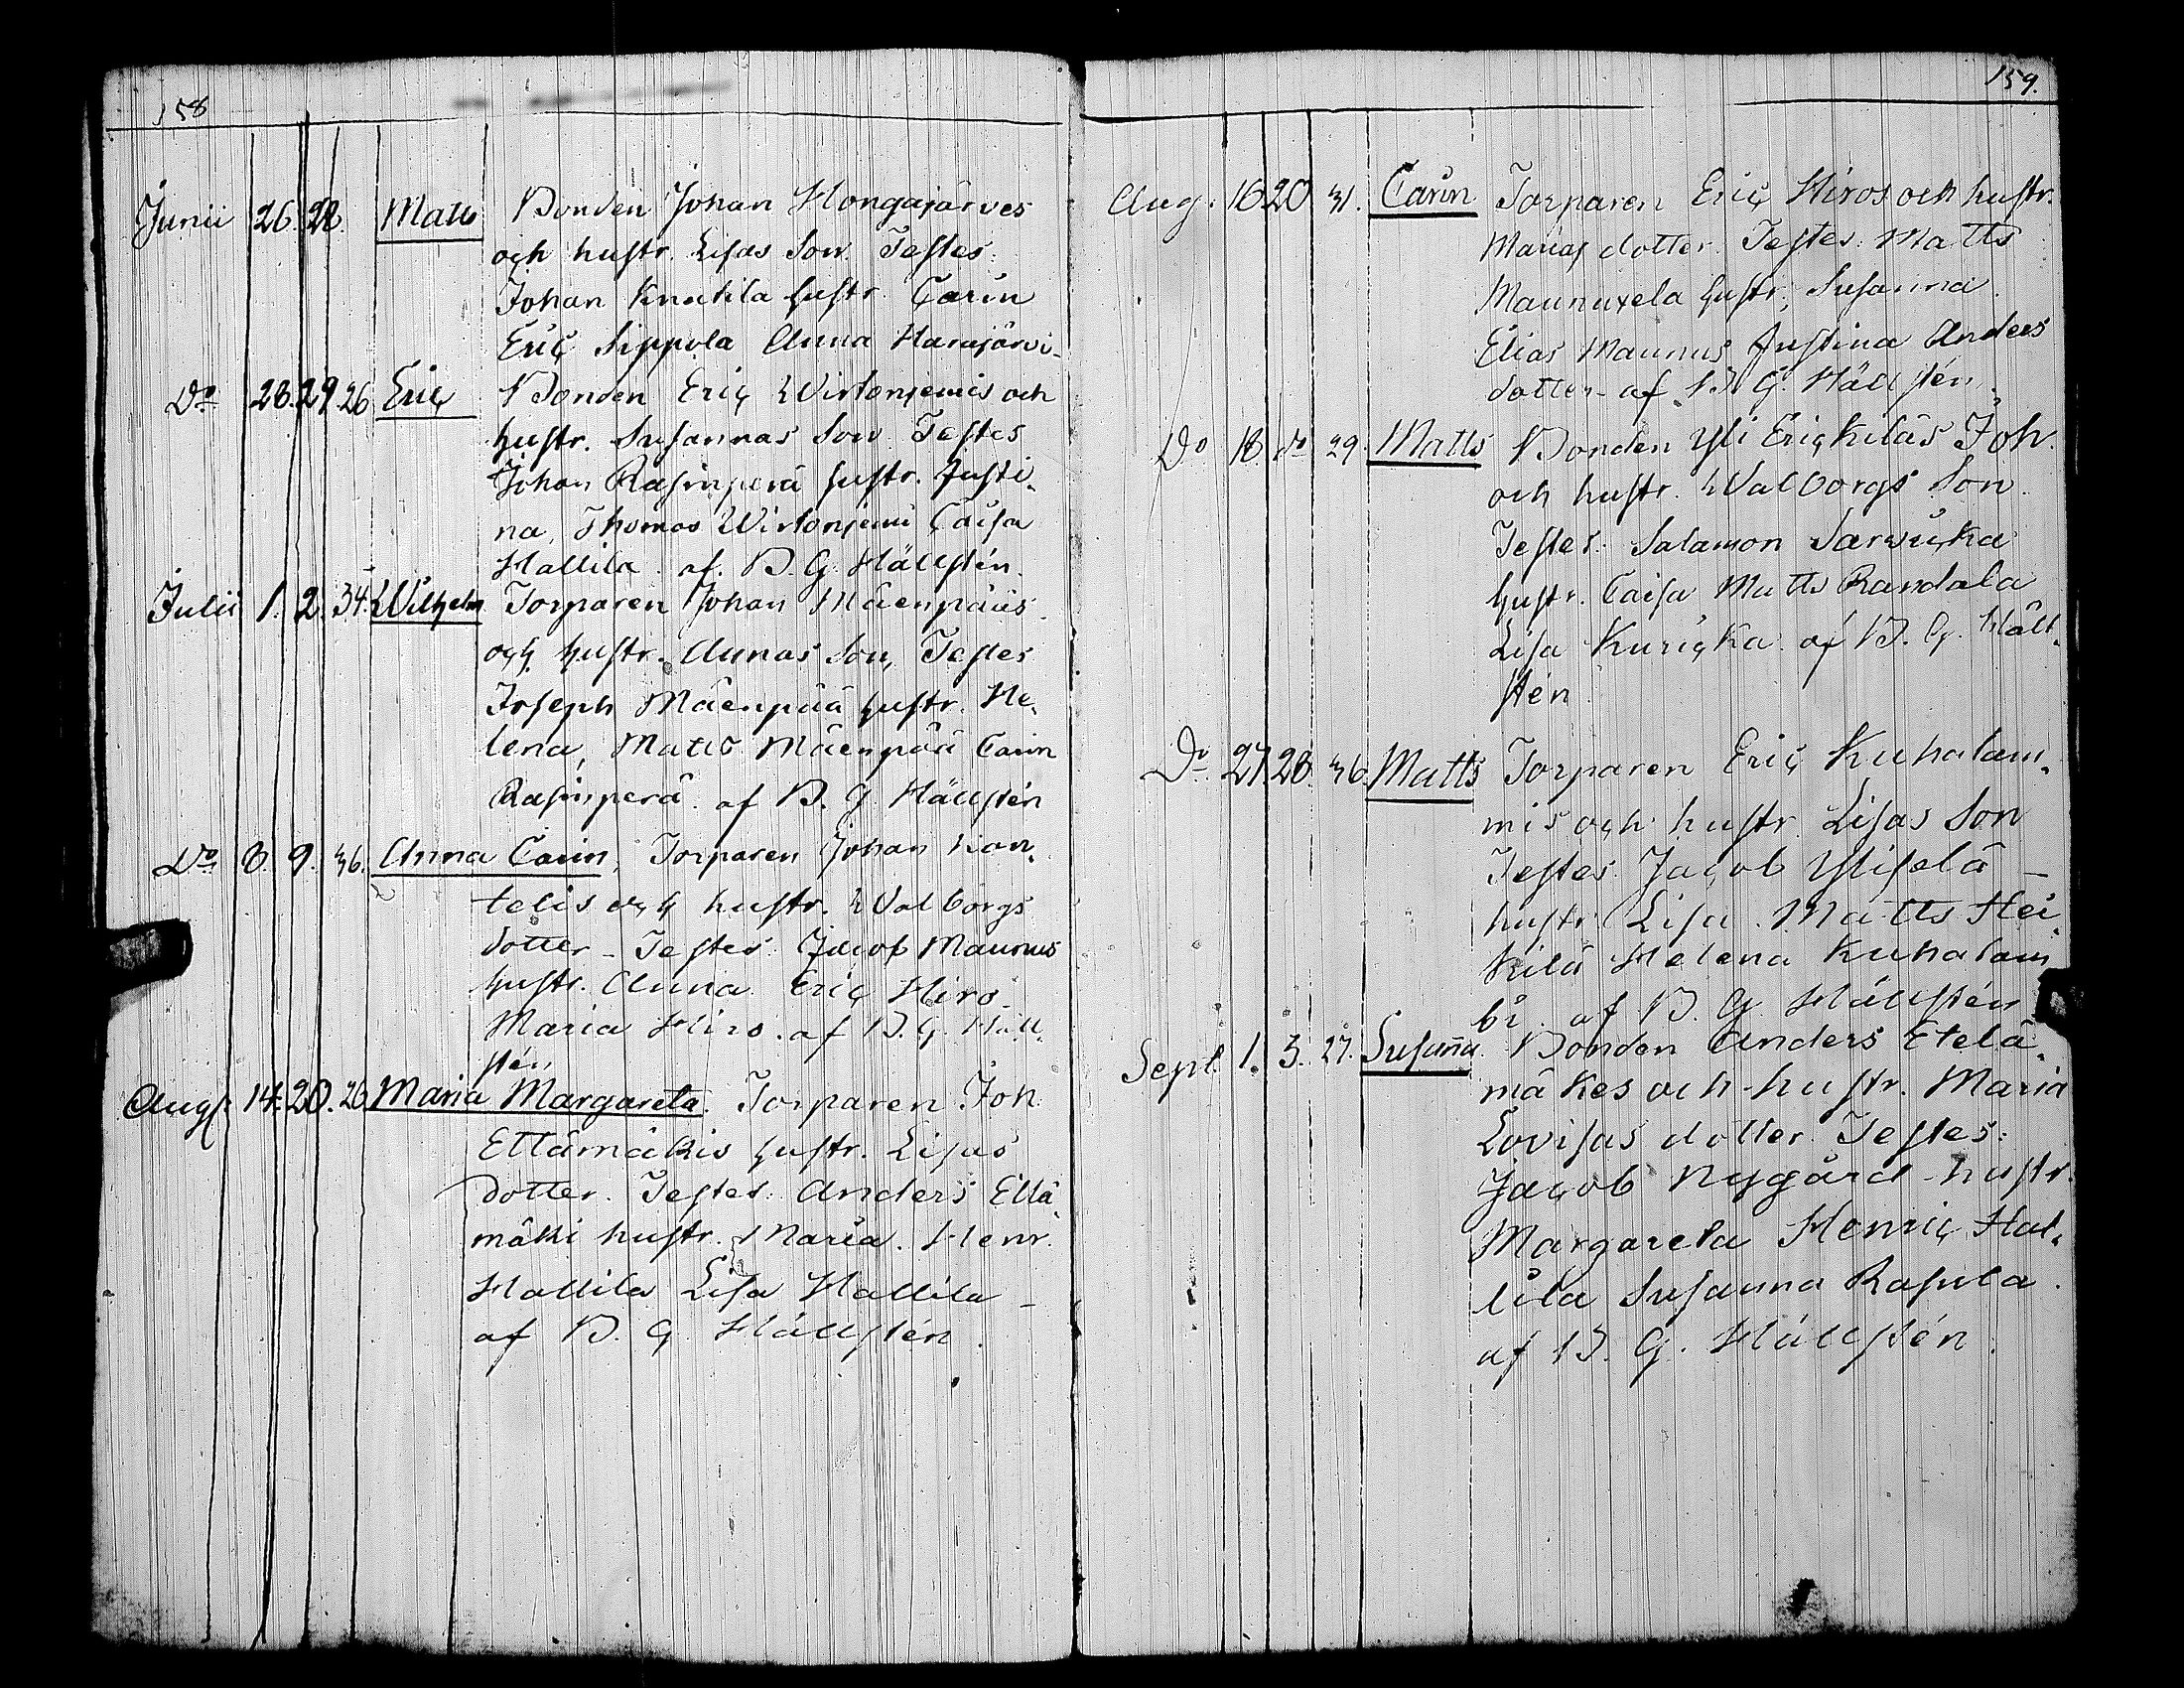 158
Junii 26. 28. Matts Bonden Johan Hongajärves
och hustr. Lisas Son. Testes
Johan Knutila hustr. Carin
Eric Sippola Anna Harajärvi
Do 28. 29. 26 Eric Bonden Eric Wirtoniemis och
hustr. Susannas Son Testes
Johan Rasinperä hustr. Justi-
na, Thomas Wirtoniemi Caisa
Hallila. af. B. G. Hällstén.
Julii 1. 2. 34. Wilhelm Torparen Johan Mäenpääs
och hustr. Annas Son, Testes
Joseph Mäenpää hustr. He-
lena, Matts Mäenpää Carin
Rasinperä. af B. G. Hällstén
Do 8. 9. 36. Anna Carin, Torparen Johan Kan-
telis och hustr. Walborgs
dotter - Testes Jacob Maunus
hustr. Anna Eric Hiro
Maria Hiro. af B. G. Häll-
stén
Augs. 14. 20. 26 Maria Margareta. Torparen Joh
Ettämäkis hustr. Lisas
dotter. Testes. Anders Että-
mäki hustr. Maria. Henr.
Hallila Lisa Hallila -
af B. G. Hällstén.
159.
Aug. 16 20 31. Carin Torparen Eric Hiros och hustr.
Marias dotter. Testes. Matts
Maunuxela hustr. Susanna.
Elias Maunus Justina Anders
dotter - af B. G. Hällstén.
Do 18. do 29. Matts Bonden Yli Erickiläs Joh.
och hustr. Walborgs Son
Testes. Salamon Sarwicka
hustr. Caisa Matts Randala
Lisa Kuricka. af B. G. Häll-
stén
Do 27. 28. 36. Matts Torparen Eric Kuhalam-
mis och hustr. Lisas Son
Testes Jacob Yliselä -
hustr. Lisa. Matts Hei-
kilä Helena Kuhalam
bi. af B. G. Hällstén
Sept. 1. 3. 27. Susaña Bonden Anders Etelä-
mäkes och hustr. Maria
Lovisas dotter. Testes:
Jacob Nygård - hustr.
Margareta Henric Hal-
lila Susanna Rasula.
af B. G. Hällstén.